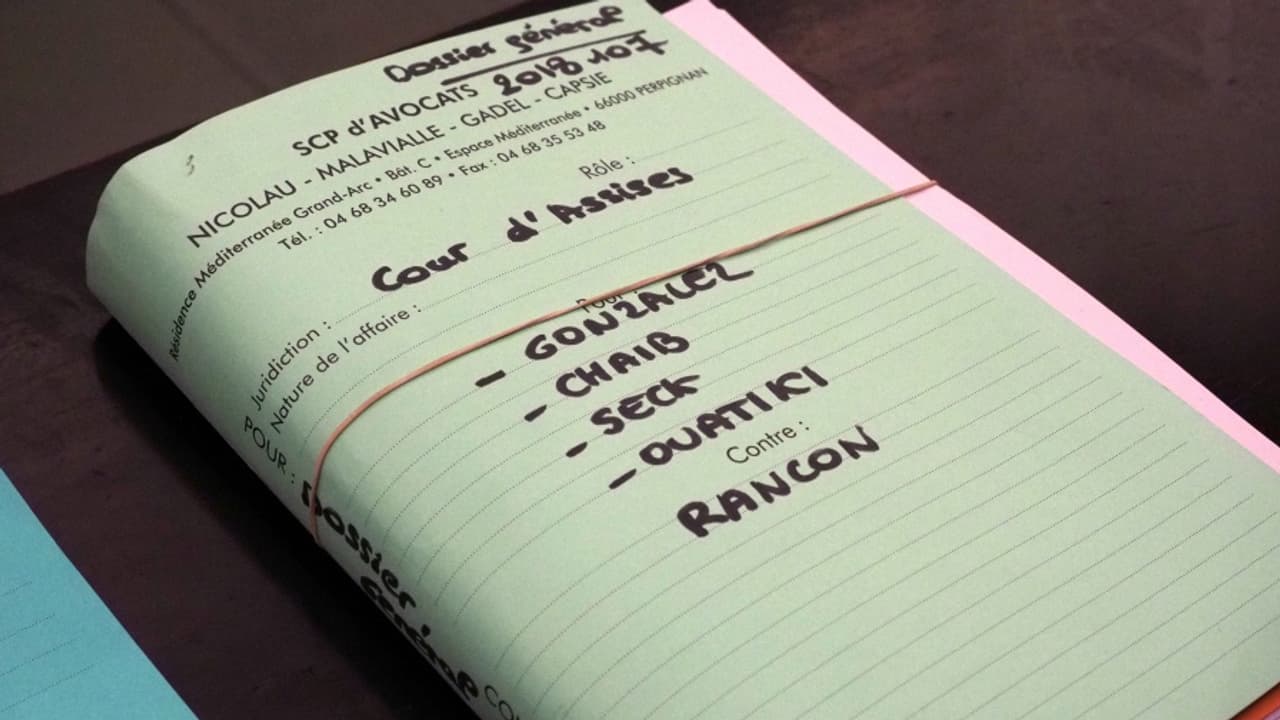 Dossier général
2018 107
SCP d'AVOCATS
NICOLAU - MALAVIALLE - GADEL - CAPSIE
Résidence Méditerranée Grand-Arc • Bât. C • Espace Méditerranée • 66000 PERPIGNAN
Tél. : 04 68 34 60 89 • Fax : 04 68 35 53 48
Rôle :
Juridiction : Cour d'Assises
Nature de l'affaire :
Pour :
- GONZALEZ
- CHAIB
- SECK
- OUATIKI
Contre :
RANCON
POUR :
Dossier
Général